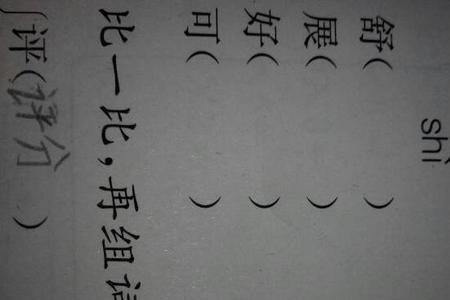 shì
舒(　　)
展(　　)
好(　　)
可(　　)
比一比,再组词
评(评价　)